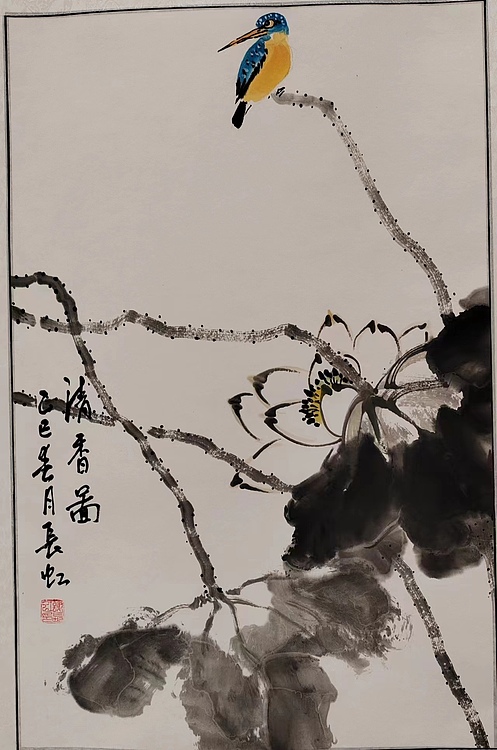 清香图
乙巳春月長虹